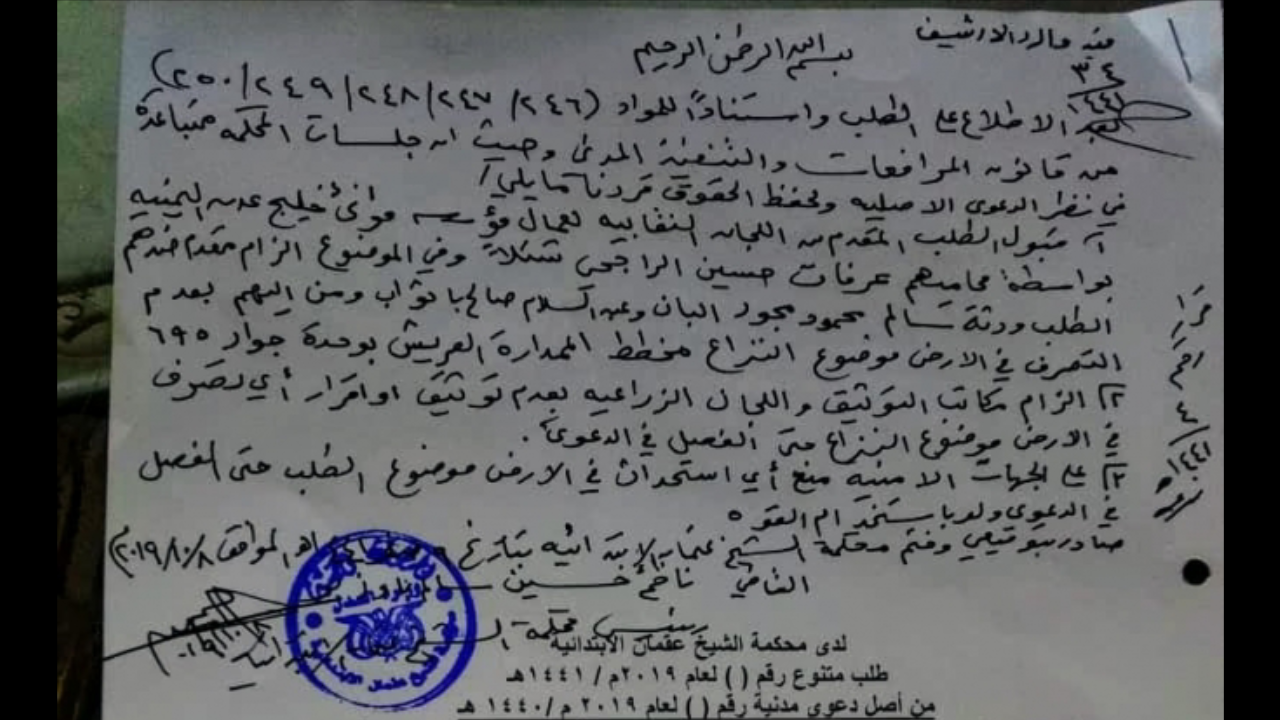 منه مالرد الارشيف
بسم الله الرحمن الرحيم
٣/٤
١٤٤١
بعد الاطلاع على الطلب واستناداً للمواد (٢٤٦/٢٤٧/٢٤٨/٢٤٩/٢٥٠)
من قانون المرافعات والتنفيذ المدني وحيث ان جلسات المحكمة متباعدة
في نظر الدعوى الاصليه ولحفظ الحقوق قررنا مايلي/
١- قبول الطلب المقدم من اللجان النقابيه لعمال مؤسسة موانئ خليج عدن اليمنيه
بواسطة محاميهم عرفات حسين الراجحي شكلاً وفي الموضوع الزام مقدم ضدهم
الطلب ورثة سالم محمود مجور البان وعبدالسلام صالح باثواب ومن اليهم بعدم
التصرف في الارض موضوع النزاع مخطط الممدارة العريش بوحدة جوار ٦٩٥
٢- الزام مكاتب التوثيق واللجان الزراعيه بعدم توثيق او اقرار أي تصرف
في الارض موضوع النزاع حتى الفصل في الدعوى.
٣- على الجهات الامنيه منع أي استحداث في الارض موضوع الطلب حتى الفصل
في الدعوى ولو باستخدام القوه
صادر بتوقيعي وختم محكمة الشيخ عثمان الابتدائيه بتاريخ الموافق ٢٠١٩/١٠/٨م
القاضي ناجح حسين
رئيس محكمة
لدى محكمة الشيخ عثمان الابتدائية
طلب متنوع رقم ( ) لعام ٢٠١٩م / ١٤٤١هـ
من أصل دعوى مدنية رقم ( ) لعام ٢٠١٩ م /١٤٤٠ هـ